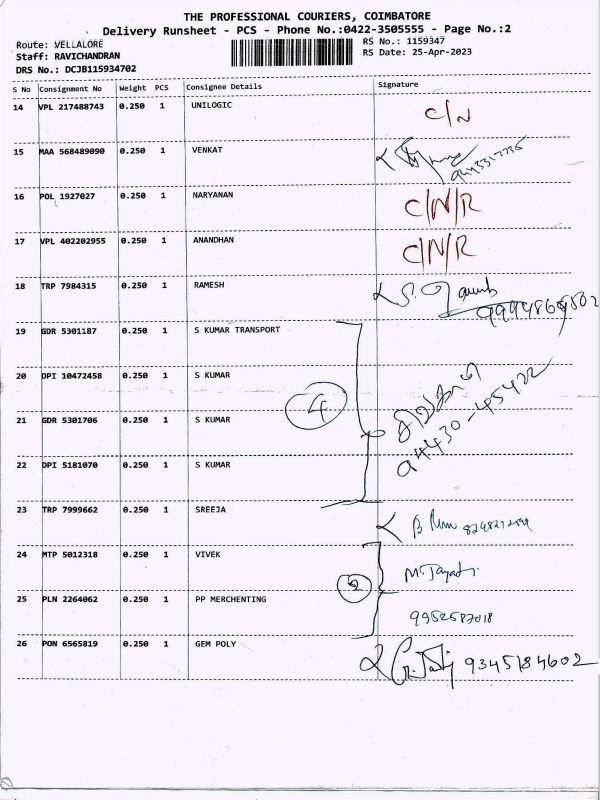 THE PROFESSIONAL COURIERS, COIMBATORE
Delivery Runsheet - PCS - Phone No.:0422-3505555 - Page No.:2
Route: VELLALORE RS No.: 1159347
Staff: RAVICHANDRAN RS Date: 25-Apr-2023
DRS No.: DCJB115934702
S No Consignment No Weight PCS Consignee Details Signature
14 VPL 217488743 0.250 1 UNILOGIC C/N
15 MAA 568489090 0.250 1 VENKAT
16 POL 1927027 0.250 1 NARYANAN C/N/R
17 VPL 402202955 0.250 1 ANANDHAN C/N/R
18 TRP 7984315 0.250 1 RAMESH
19 GDR 5301187 0.250 1 S KUMAR TRANSPORT
20 DPI 10472458 0.250 1 S KUMAR
4
21 GDR 5301706 0.250 1 S KUMAR 94430-45422
22 DPI 5181070 0.250 1 S KUMAR
23 TRP 7999662 0.250 1 SREEJA
24 MTP 5012318 0.250 1 VIVEK
2
25 PLN 2264062 0.250 1 PP MERCHENTING 9952587018
26 PON 6565819 0.250 1 GEM POLY 9345184602